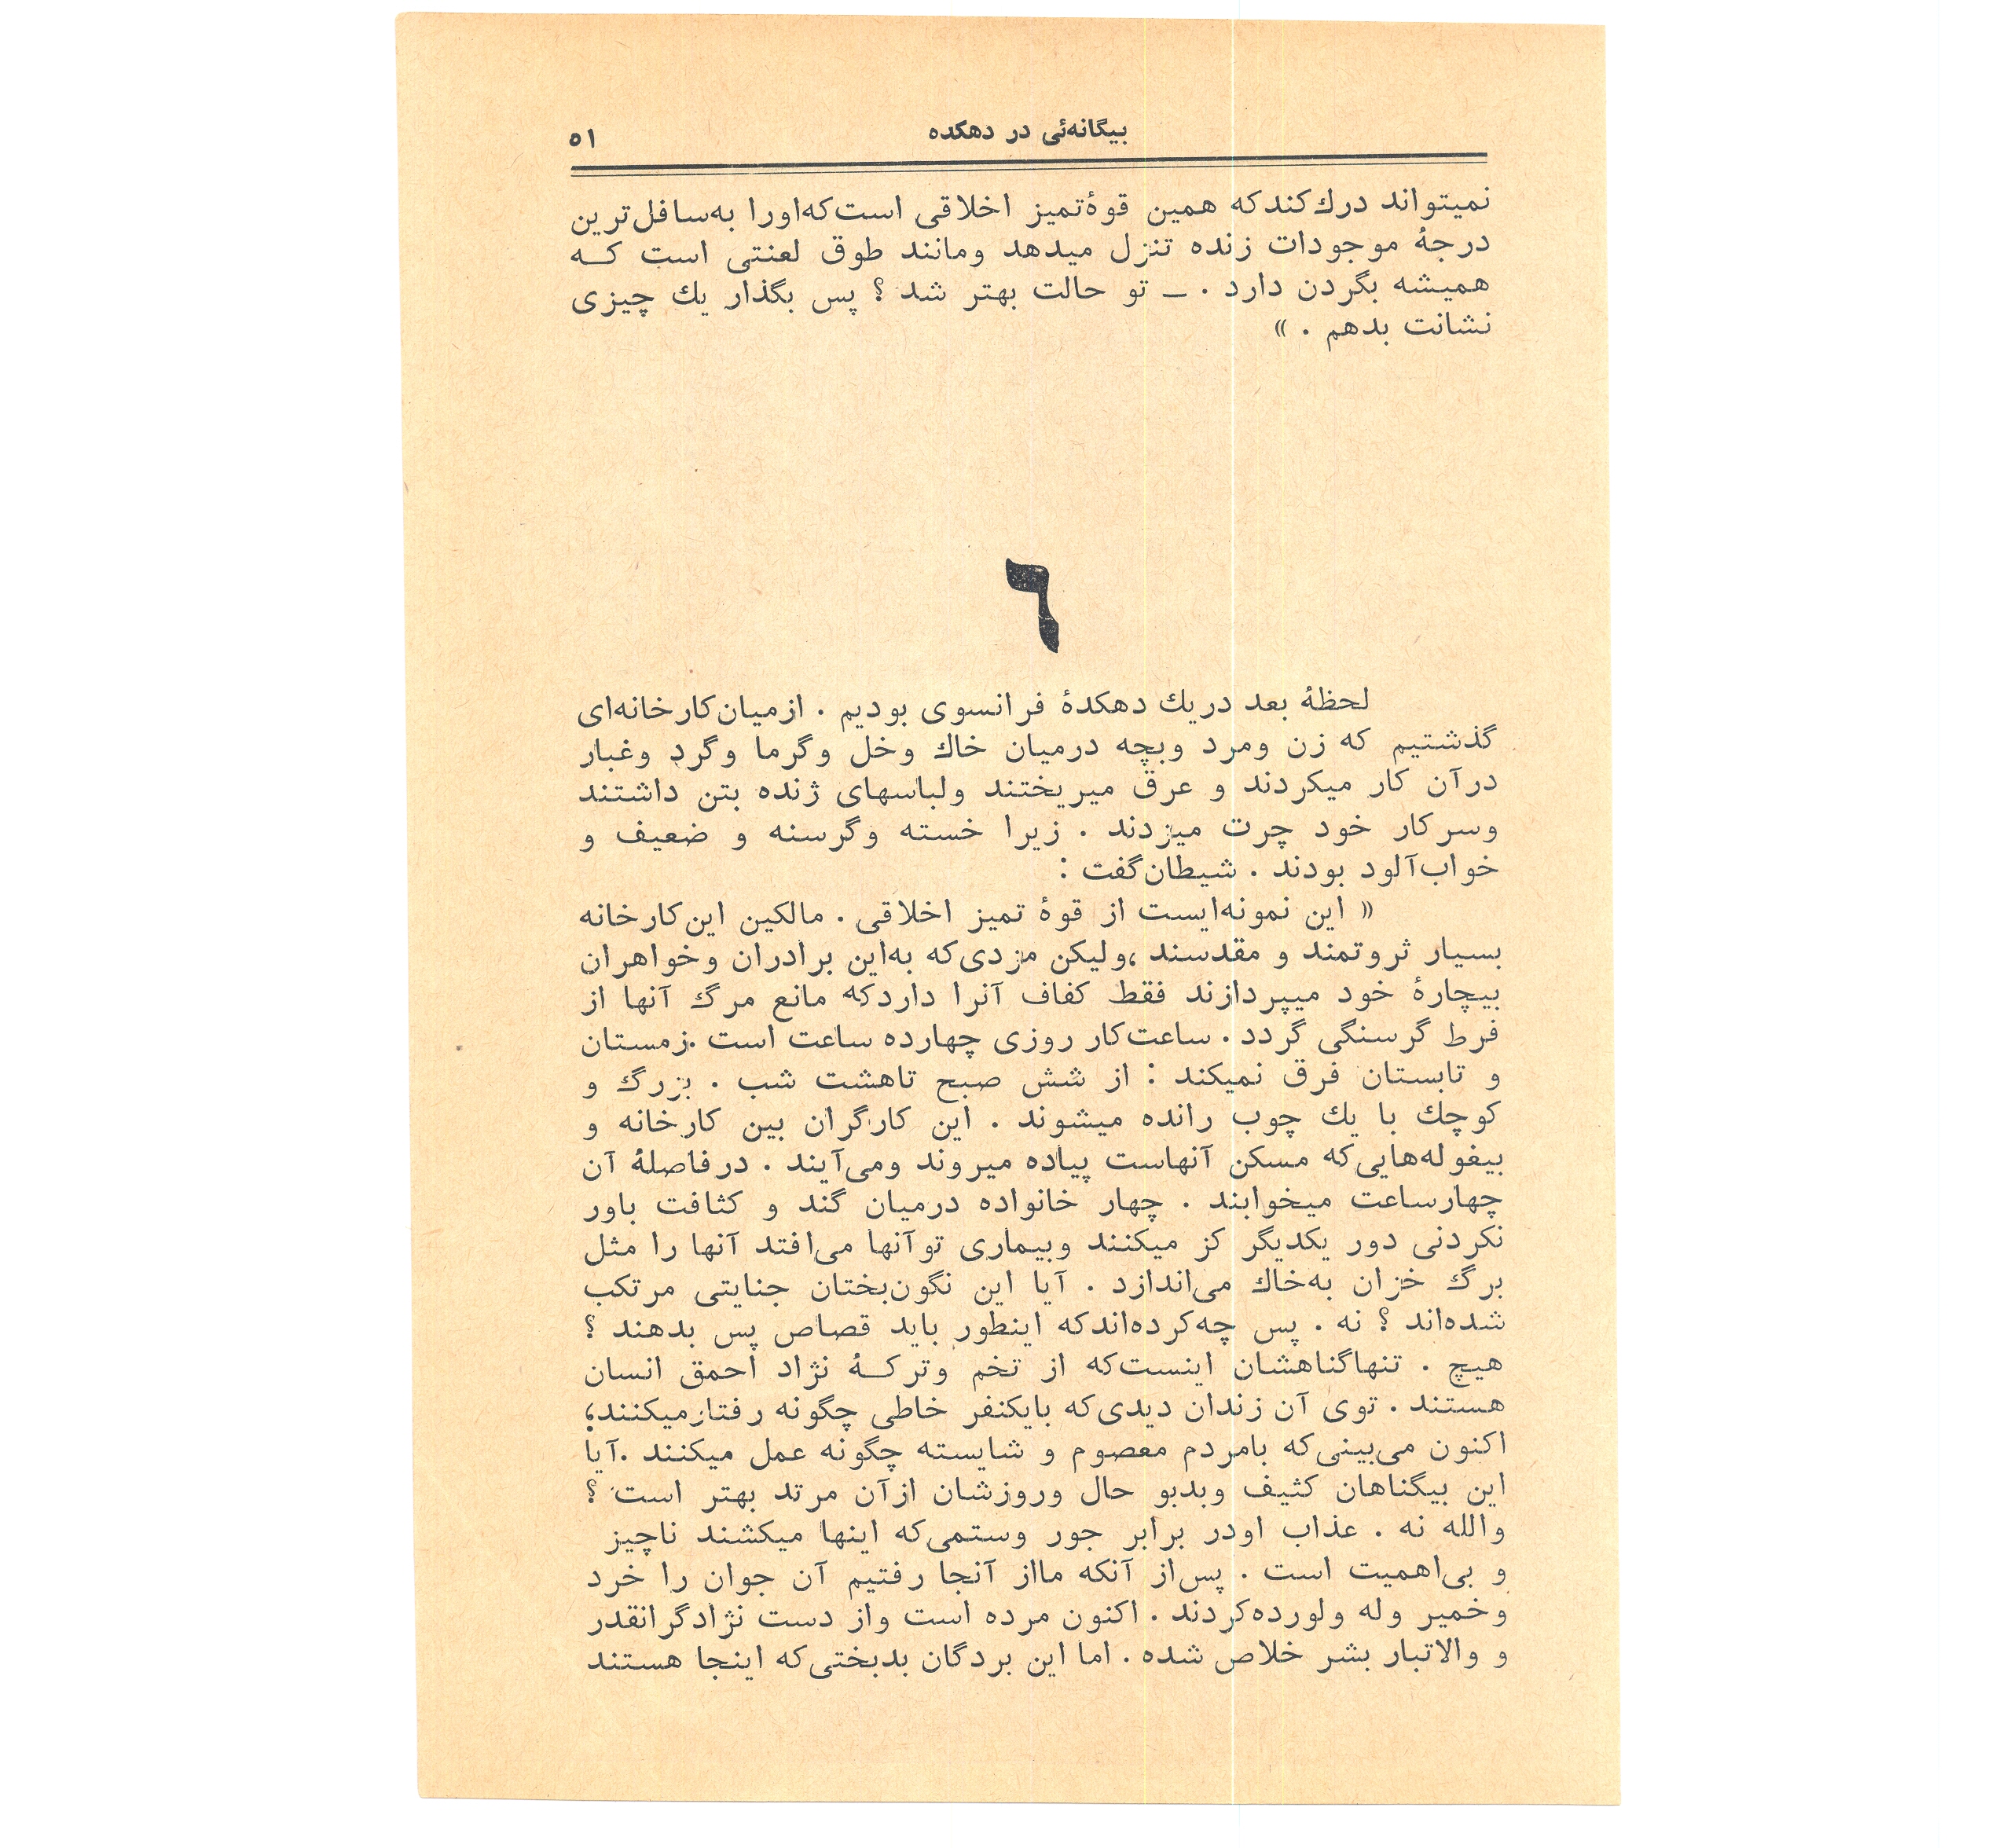 بیگانه‌ئی در دهکده ۵۱
نمیتواند درك‌کندکه همین قوهٔ‌تمیز اخلاقی است‌که‌اورا به‌سافل‌ترین
درجهٔ موجودات زنده تنزل میدهد ومانند طوق لعنتی است کـه
همیشه بگردن دارد . ــ تو حالت بهتر شد ؟ پس بگذار یك چیزی
نشانت بدهم . »
٦
لحظهٔ بعد دریك دهکدهٔ فرانسوی بودیم . ازمیان‌کارخانه‌ای
گذشتیم که زن ومرد وبچه درمیان خاك وخل وگرما وگرد وغبار
درآن کار میکردند و عرق میریختند ولباسهای ژنده بتن داشتند
وسرکار خود چرت میزدند . زیرا خسته وگرسنه و ضعیف و
خواب‌آلود بودند . شیطان‌گفت :
« این نمونه‌ایست از قوهٔ تمیز اخلاقی . مالکین این‌کارخانه
بسیار ثروتمند و مقدسند ،ولیکن مزدی‌که به‌این برادران وخواهران
بیچارهٔ خود میپردازند فقط کفاف آنرا داردکه مانع مرگ آنها از
فرط گرسنگی گردد . ساعت‌کار روزی چهارده ساعت است .زمستان
و تابستان فرق نمیکند : از شش صبح تاهشت شب . بزرگ و
کوچك با یك چوب رانده میشوند . این کارگران بین کارخانه و
بیغوله‌هایی‌که مسکن آنهاست پیاده میروند ومی‌آیند . درفاصلهٔ آن
چهارساعت میخوابند . چهار خانواده درمیان گند و کثافت باور
نکردنی دور یکدیگر کز میکنند وبیماری توآنها می‌افتد آنها را مثل
برگ خزان به‌خاك می‌اندازد . آیا این نگون‌بختان جنایتی مرتکب
شده‌اند ؟ نه . پس چه‌کرده‌اندکه اینطور باید قصاص پس بدهند ؟
هیچ . تنهاگناهشان اینست‌که از تخم وترکـهٔ نژاد احمق انسان
هستند . توی آن زندان دیدی‌که بایکنفر خاطی چگونه رفتارمیکنند؛
اکنون می‌بینی‌که بامردم معصوم و شایسته چگونه عمل میکنند .آیا
این بیگناهان کثیف وبدبو حال وروزشان ازآن مرتد بهتر است ؟
والله نه . عذاب اودر برابر جور وستمی‌که اینها میکشند ناچیز
و بی‌اهمیت است . پس‌از آنکه مااز آنجا رفتیم آن جوان را خرد
وخمیر وله ولورده‌کردند . اکنون مرده است واز دست نژادگرانقدر
و والاتبار بشر خلاص شده . اما این بردگان بدبختی‌که اینجا هستند